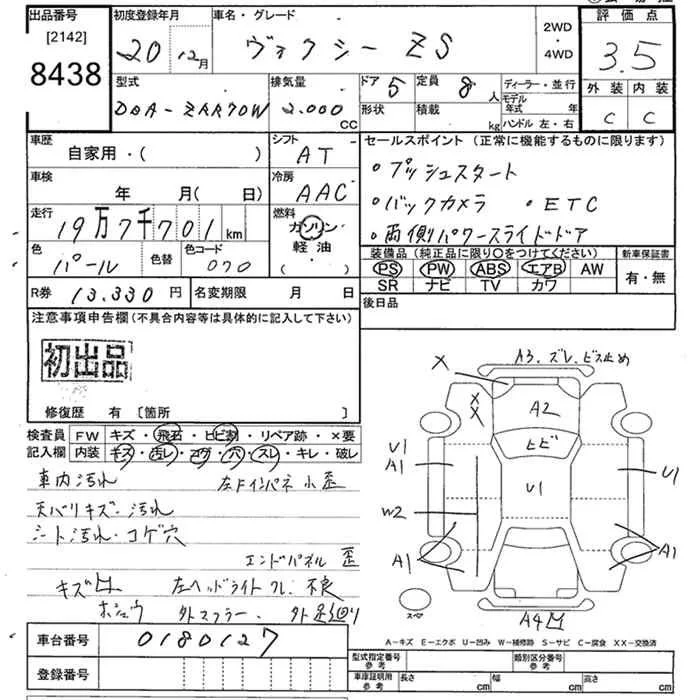 出品番号 初度登録年月 車名・グレード 2WD・4WD 評価点
[2142]
8438 20 12月 ヴォクシー ZS 3.5
型式 排気量 ドア 5 定員 8人 ディーラー・並行 外装 内装
DBA-ZRR70W 2.000 CC 形状 積載 kg モデル年式 年 C C
ハンドル 左・右
車歴 シフト セールスポイント(正常に機能するものに限ります)
自家用・( ) AT ・プッシュスタート
車検 冷房
年 月( 日) AAC ・バックカメラ ・ETC
走行 燃料
19万7千701km ガソリン ・両側パワースライドドア
色 色替 色コード 軽油 装備品(純正品に限り○をつけてください) 新車保証書
パール 070 ・( ) PS PW ABS エアB AW 有・無
R券 13.330円 名変期限 月 日 SR ナビ TV カワ
後日品
注意事項申告欄(不具合内容等は具体的に記入して下さい)
初出品
修復歴 有 [箇所 ]
検査員 FW キズ・飛石・ヒビ割・リペア跡・×要
記入欄 内装 キズ・汚レ・コゲ・穴・スレ・キレ・破レ
車内汚れ 左Fインパネ小歪
天バリキズ・汚れ
シート汚れ・コゲ穴
エンドパネル 歪
キズ凹 左ヘッドライト 不良
ホシュウ 外マフラー. 外足廻り
A3.ズレ.ビス止め
X
X
X
A2
ヒビ
U1
A1
U1
U1
W2
A1
A1
スペア
A4凹
A-キズ E-エクボ U-凹み W-補修跡 S-サビ C-腐食 XX-交換済
車台番号 0180127
登録番号
型式指定番号 参考 類別区分番号 参考
車庫証明用 参考 長さ cm 幅 cm 高さ cm